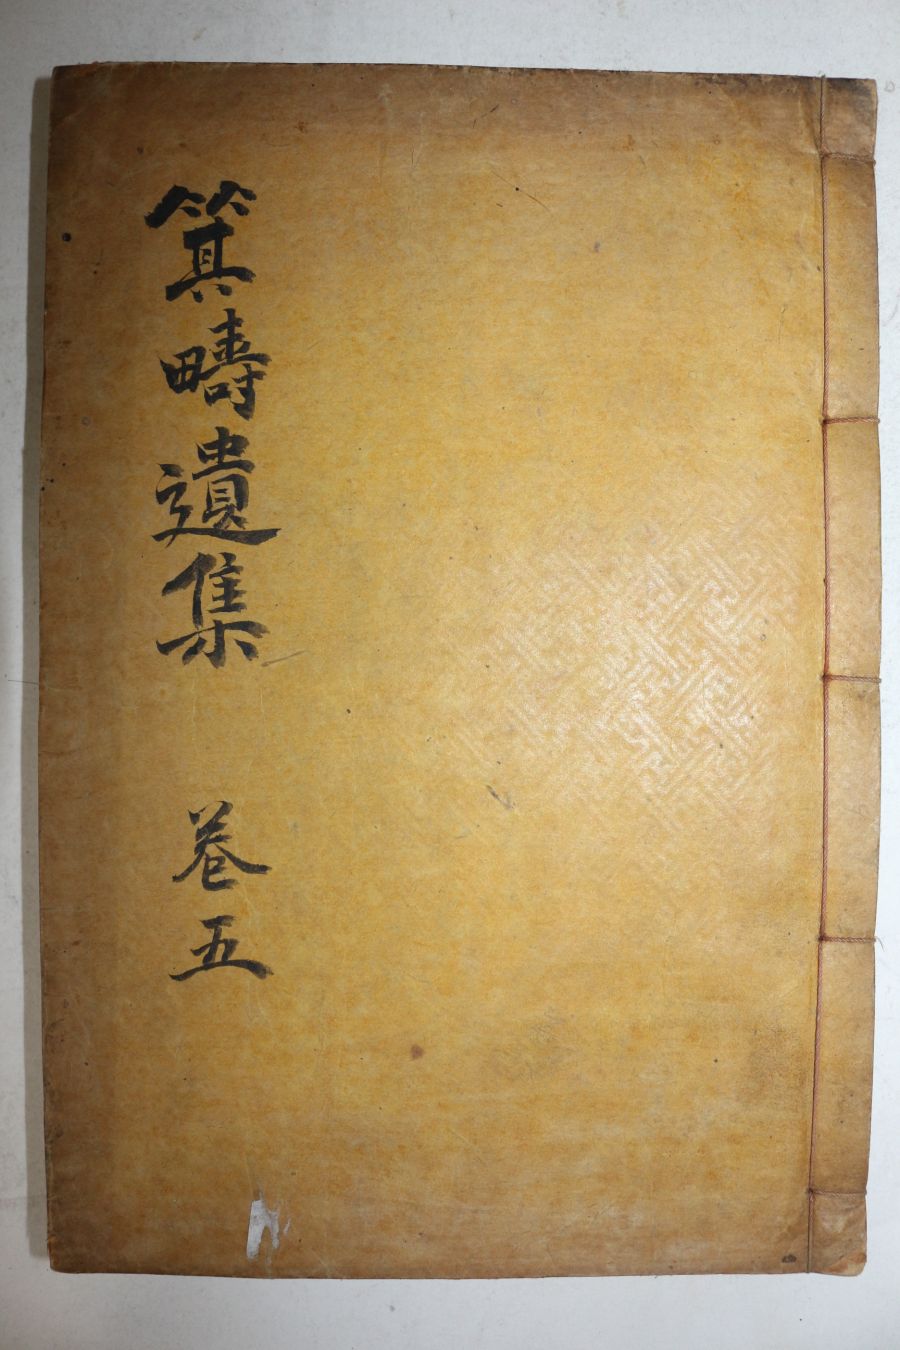 箕疇遺集 卷五